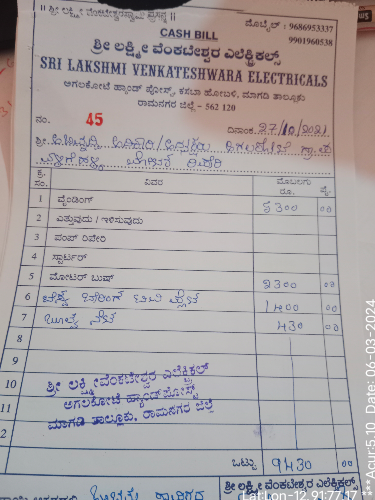 || ಶ್ರೀ ಲಕ್ಷ್ಮೀ ವೆಂಕಟೇಶ್ವರಸ್ವಾಮಿ ಪ್ರಸನ್ನ ||
ಮೊಬೈಲ್ : 9686953337
CASH BILL
9901960538
ಶ್ರೀ ಲಕ್ಷ್ಮೀ ವೆಂಕಟೇಶ್ವರ ಎಲೆಕ್ಟ್ರಿಕಲ್ಸ್
SRI LAKSHMI VENKATESHWARA ELECTRICALS
ಅಗಲಕೋಟೆ ಹ್ಯಾಂಡ್ ಪೋಸ್ಟ್, ಕಸಬಾ ಹೋಬಳಿ, ಮಾಗಡಿ ತಾಲ್ಲೂಕು
ರಾಮನಗರ ಜಿಲ್ಲೆ - 562 120
ನಂ. 45 ದಿನಾಂಕ 27/10/2021
ಶ್ರೀ
ಕ್ರ. ಸಂ. ವಿವರ ಮೊಬಲಗು ರೂ. ಪೈ.
1 ವೈಂಡಿಂಗ್ 5300 00
2 ಎತ್ತುವುದು / ಇಳಿಸುವುದು
3 ಪಂಪ್ ರಿಪೇರಿ
4 ಸ್ಟಾರ್ಟರ್
5 ಮೋಟರ್ ಬುಷ್ 2300 00
6 1400 00
7 430 00
8
9
10 ಶ್ರೀ ಲಕ್ಷ್ಮೀ ವೆಂಕಟೇಶ್ವರ ಎಲೆಕ್ಟ್ರಿಕಲ್
11 ಅಗಲಕೋಟೆ ಹ್ಯಾಂಡ್ ಪೋಸ್ಟ್
2 ಮಾಗಡಿ ತಾಲ್ಲೂಕು, ರಾಮನಗರ ಜಿಲ್ಲೆ
ಒಟ್ಟು 9430 00
ಶ್ರೀ ಲಕ್ಷ್ಮೀ ವೆಂಕಟೇಶ್ವರ ಎಲೆಕ್ಟ್ರಿಕಲ್ಸ್
Lat Lon-12.91:77.17
***Acur:5.10 Date: 06-03-2024